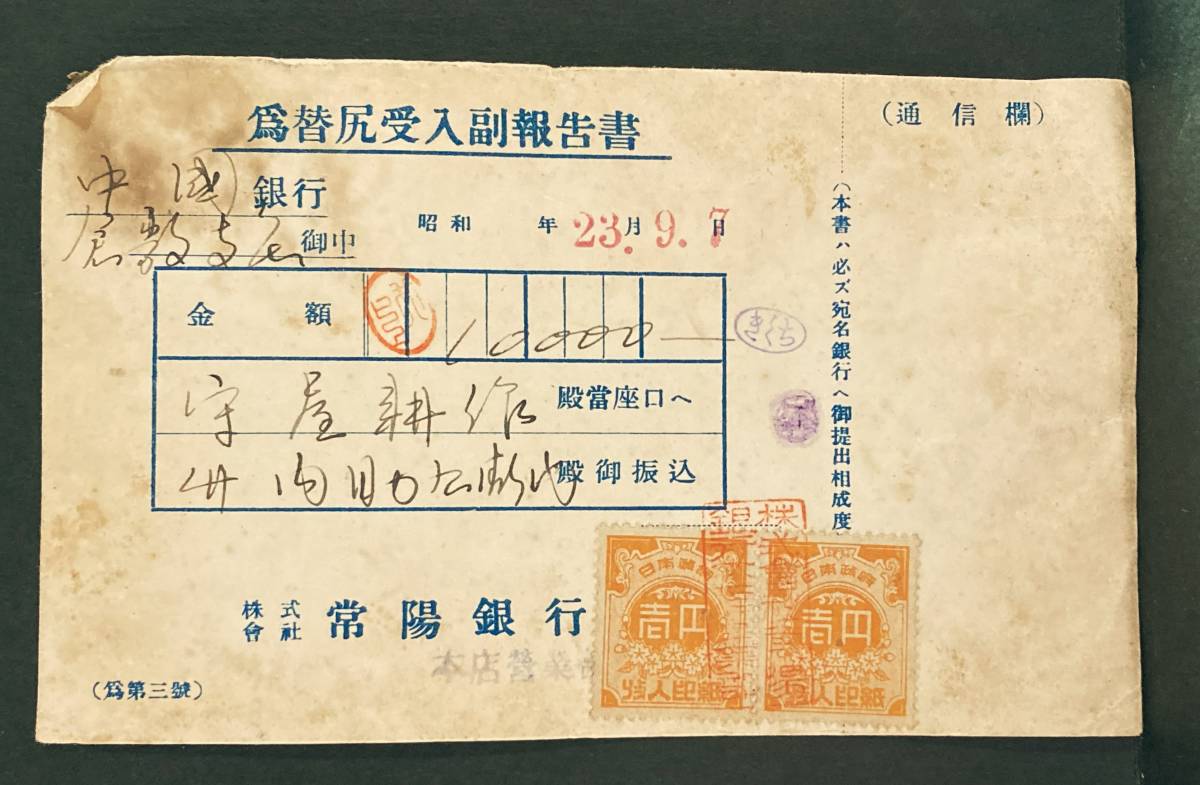 爲替尻受入副報告書
中國銀行
倉敷支店御中
昭和 年 23.月 9. 7日
金額 10000—
きくち
守屋耕作殿當座口へ
殿御振込
株式會社 常陽銀行
本店営業
(爲第三號)
(通信欄)
(本書ハ必ズ宛名銀行ヘ御提出相成度
日本政府
壹円
収入印紙
日本政府
壹円
収入印紙